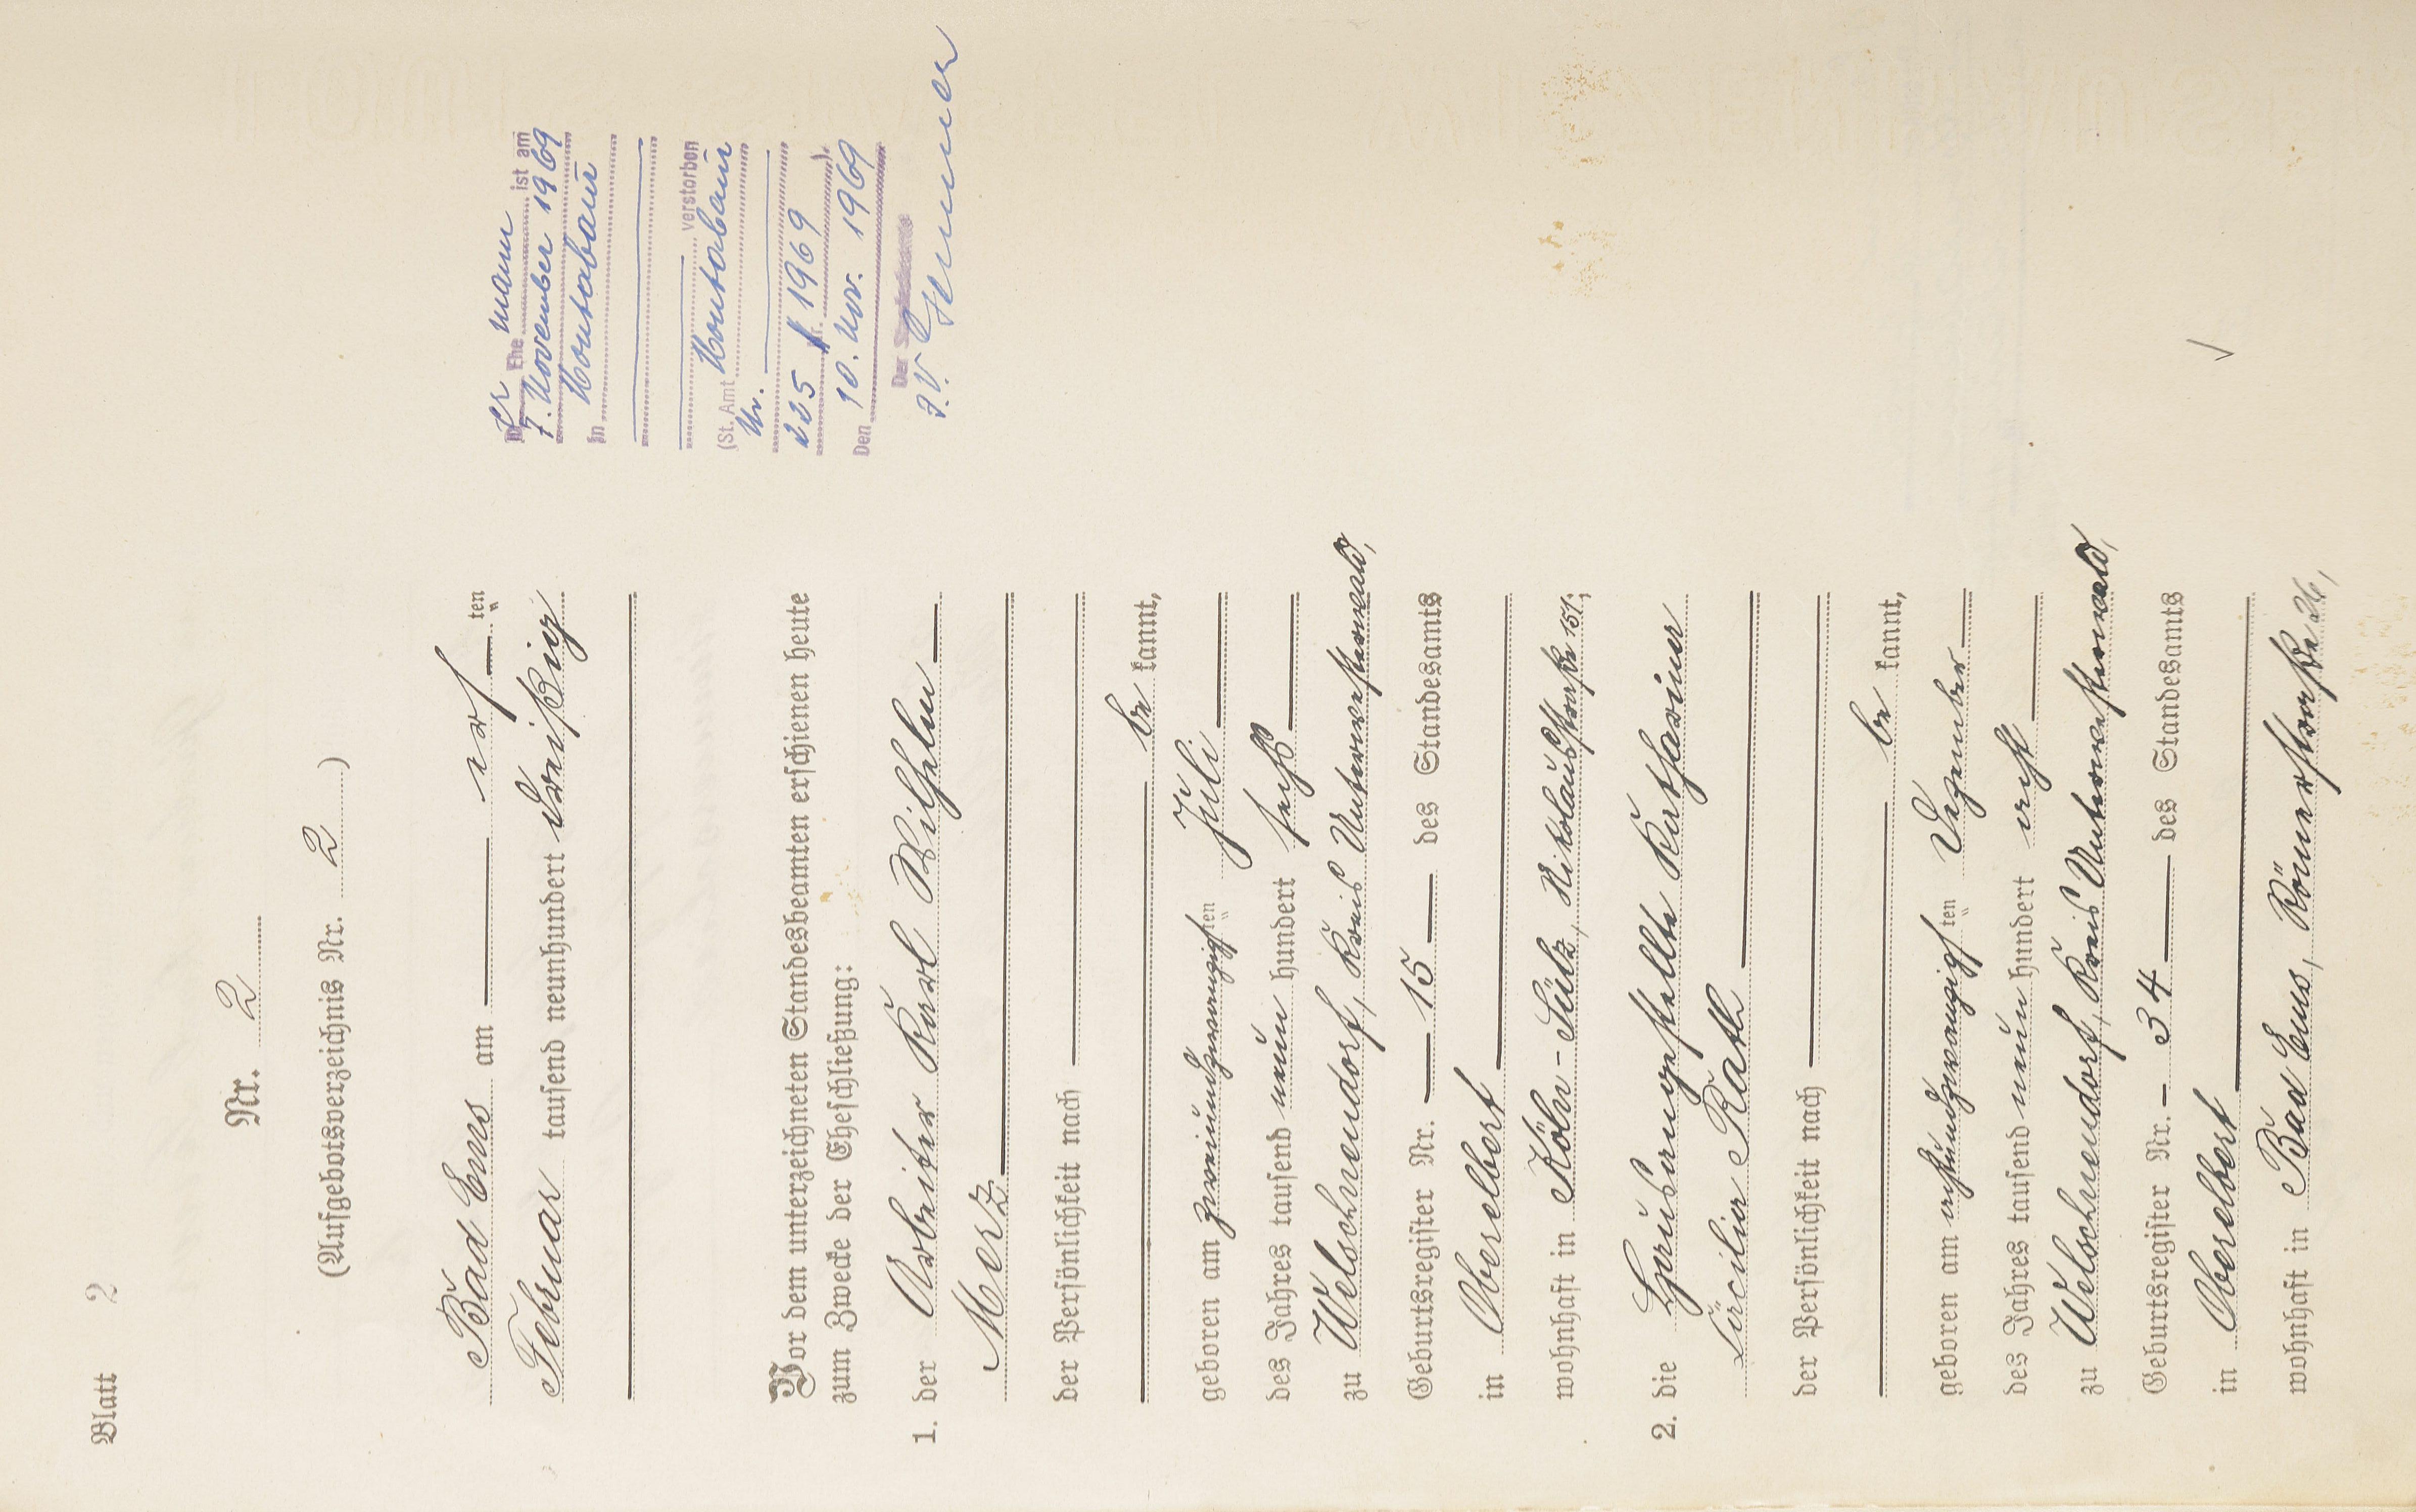 Blatt 2
Nr. 2
(Aufgebotsverzeichnis Nr. 2)
Bad Ems am acht ten
Februar tausend neunhundert dreißig
Vor dem unterzeichneten Standesbeamten erschienen heute
zum Zwecke der Eheschließung:
1. der Arbeiter Karl Wilhelm
Merz
der Persönlichkeit nach
be kannt,
geboren am zweiundzwanzigsten Juli
des Jahres tausend neun hundert sechs
zu Welschneudorf, Kreis Unterwesterwald,
Geburtsregister Nr. 15 des Standesamts
in Oberelbert
wohnhaft in Köln-Sülz, Nikolausstraße 151;
2. die Hausangestellte Katharine
Cäcilia Rath
der Persönlichkeit nach
be kannt,
geboren am achtundzwanzigsten Dezember
des Jahres tausend neun hundert acht
zu Welschneudorf, Kreis Unterwesterwald,
Geburtsregister Nr. 34 des Standesamts
in Oberelbert
wohnhaft in Bad Ems, Römerstraße 26,
Der Ehe mann ist am
7. November 1969
in Montabaur
verstorben
(St. Amt Montabaur
Nr.
225 / 1969 ).
Den 10. Nov. 1969
Der
I.V.